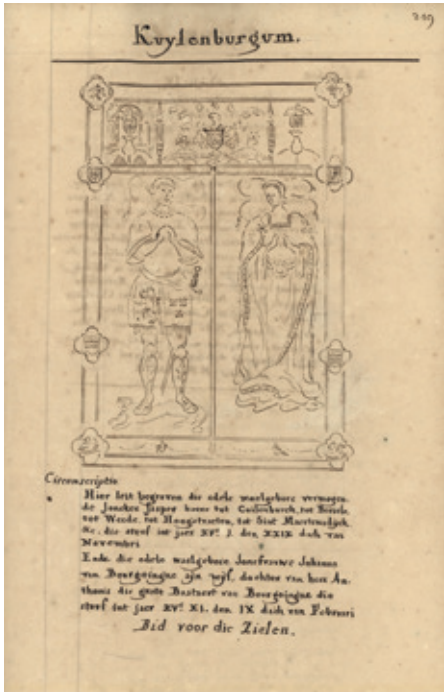 219
Kuylenburgum.
Circumscriptio
Hier leit begraven die edele waelgebore vermogen
de Joncker Jasper heere tot Culenborch, tot
tot Weede, tot Hoogstraeten, tot Sint Martensdijck
&c. die sterf int jaer XVᶜ. J. den XXIX dach van
Novembri
Ende die edele waelgebore Joncfrouwe Johanna
van Bourgoingne zijn wijf, dochter van heer An,
thonis die groote Bastaert van Bourgoingne die
sterf int jaer XVᶜ. XI. den IX dach van Februari
Bid voor die Zielen.